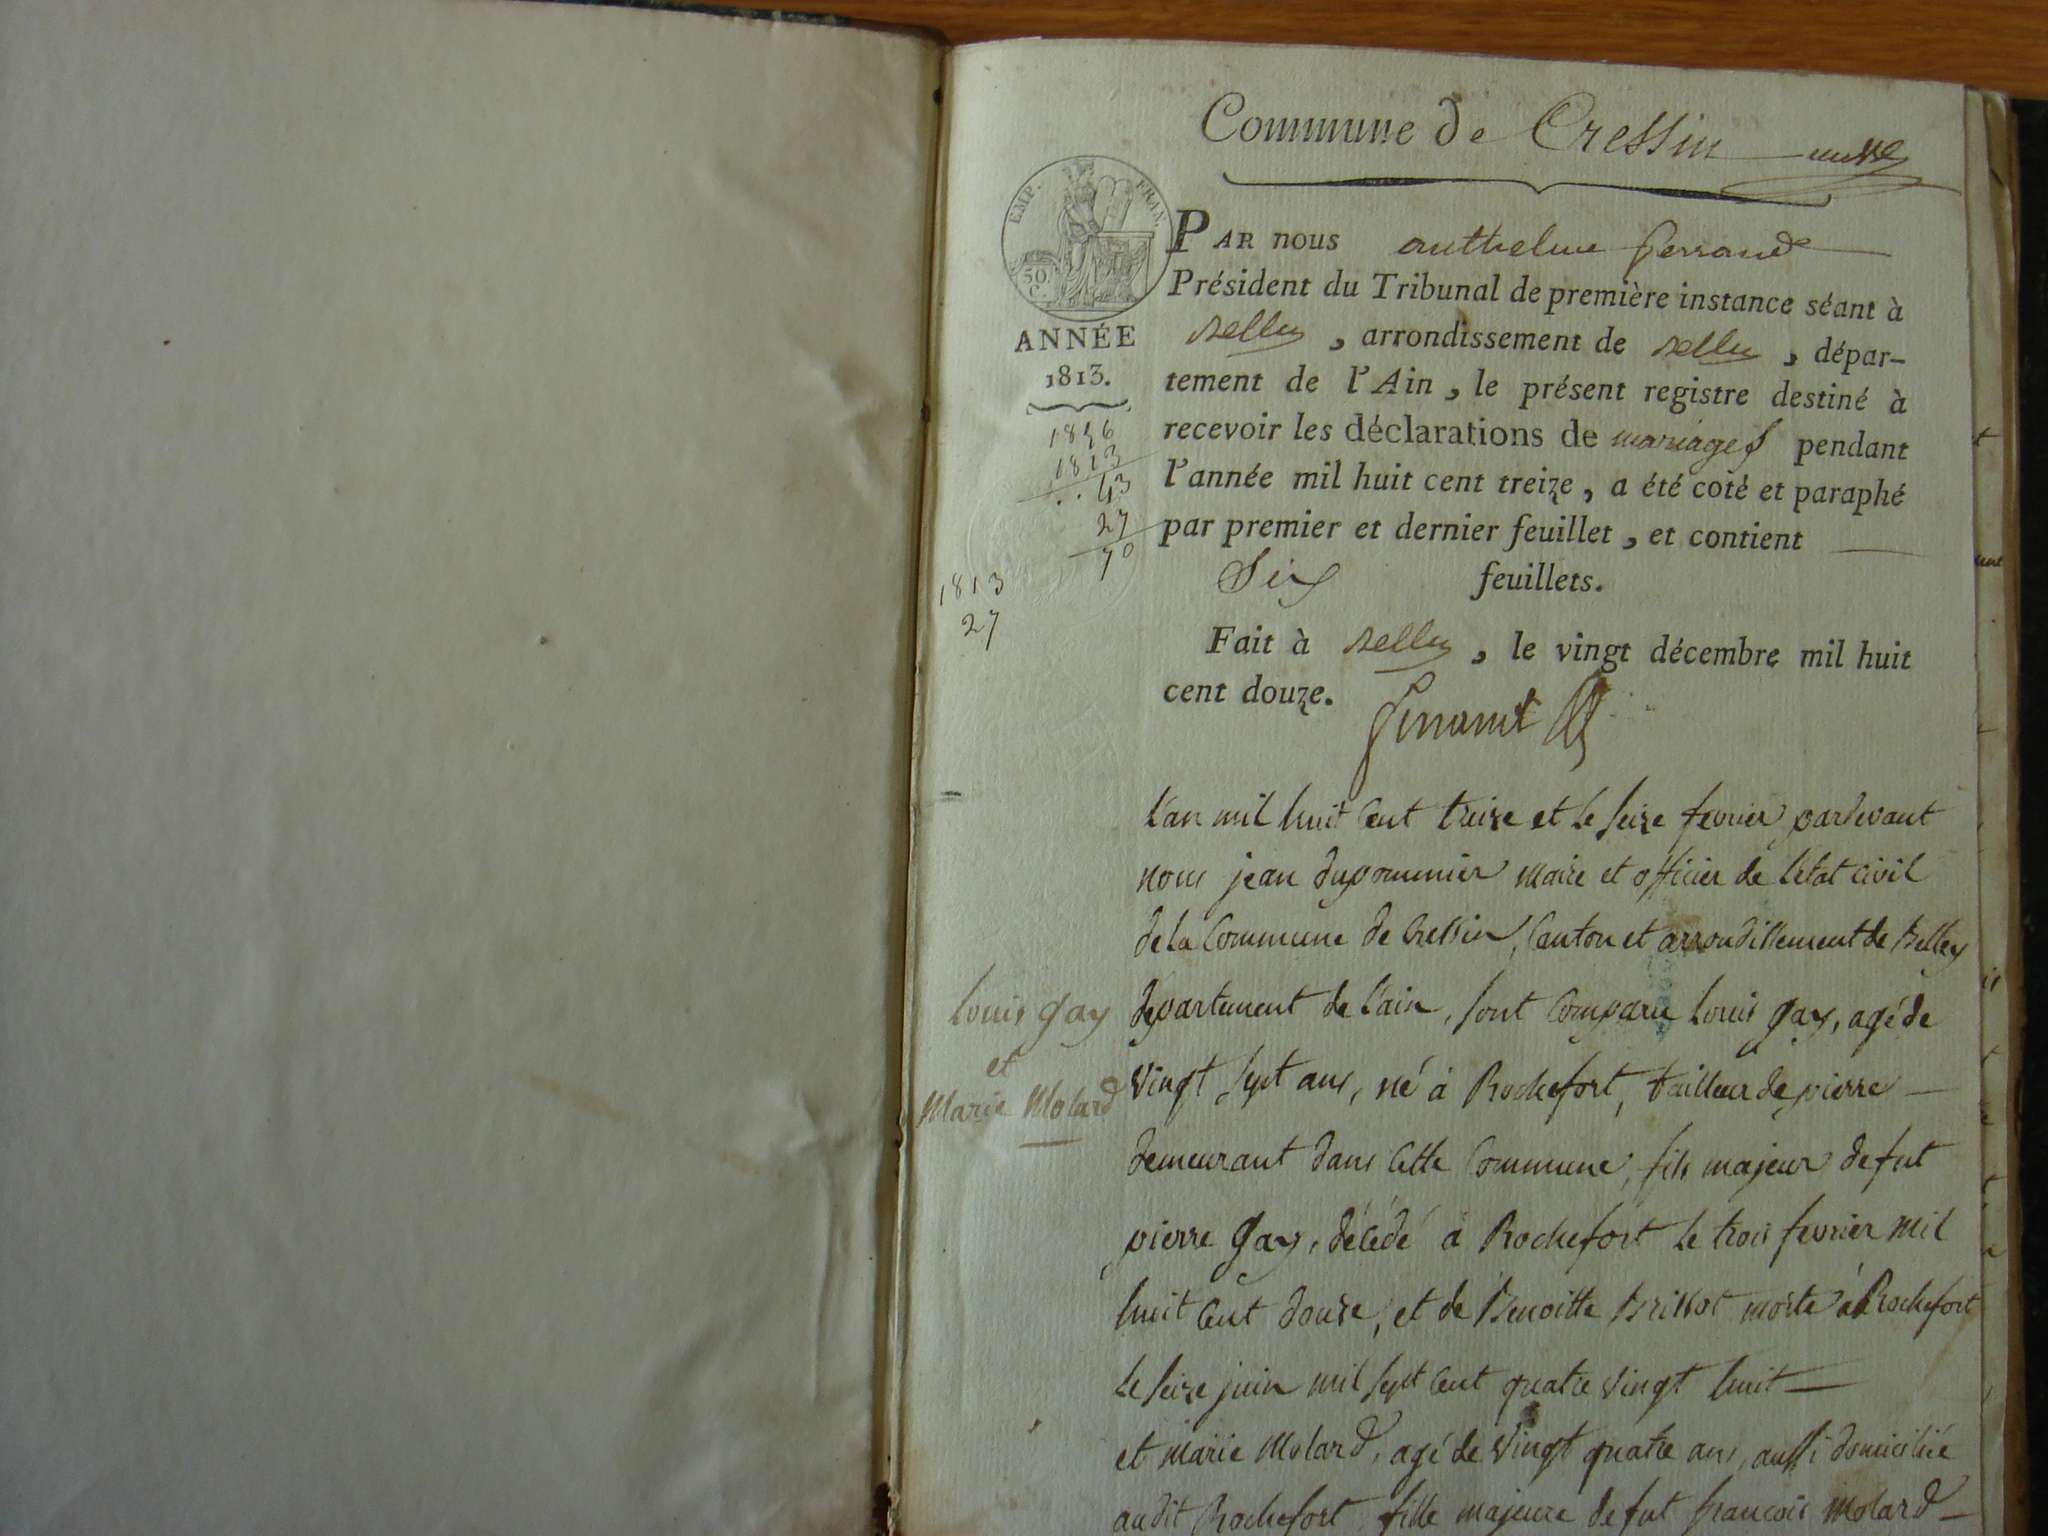 Commune de Cressin
EMP. FRAN.
50
C.
ANNÉE
1813.
1856
1813
..43
27
70
1813
27
PAR nous anthelme ferrand
Président du Tribunal de première instance séant à
Belley, arrondissement de Belley, dépar-
tement de l'Ain, le présent registre destiné à
recevoir les déclarations de mariages pendant
l'année mil huit cent treize, a été coté et paraphé
par premier et dernier feuillet, et contient
Six feuillets.
Fait à Belley, le vingt décembre mil huit
cent douze.
l'an mil huit Cent treize et le seize fevrier pardevant
nous jean dupommier maire et officier de l'état civil
de la Commune de Cressin, Canton et arrondissement de Belley
département de l'ain, sont Comparu louis gay, agé de
vingt sept ans, né à Rochefort, tailleur de pierre
demeurant dans Cette Commune, fils majeur de fut
pierre gay, décédé à Rochefort le trois fevrier mil
huit Cent douze, et de Benoitte Brissot morte à Rochefort
le seize juin mil sept Cent quatre vingt huit
et marie Molard, agé de vingt quatre ans, aussi domiciliée
audit Rochefort fille majeure de fut françois Molard
louis gay
et
Marie Molard